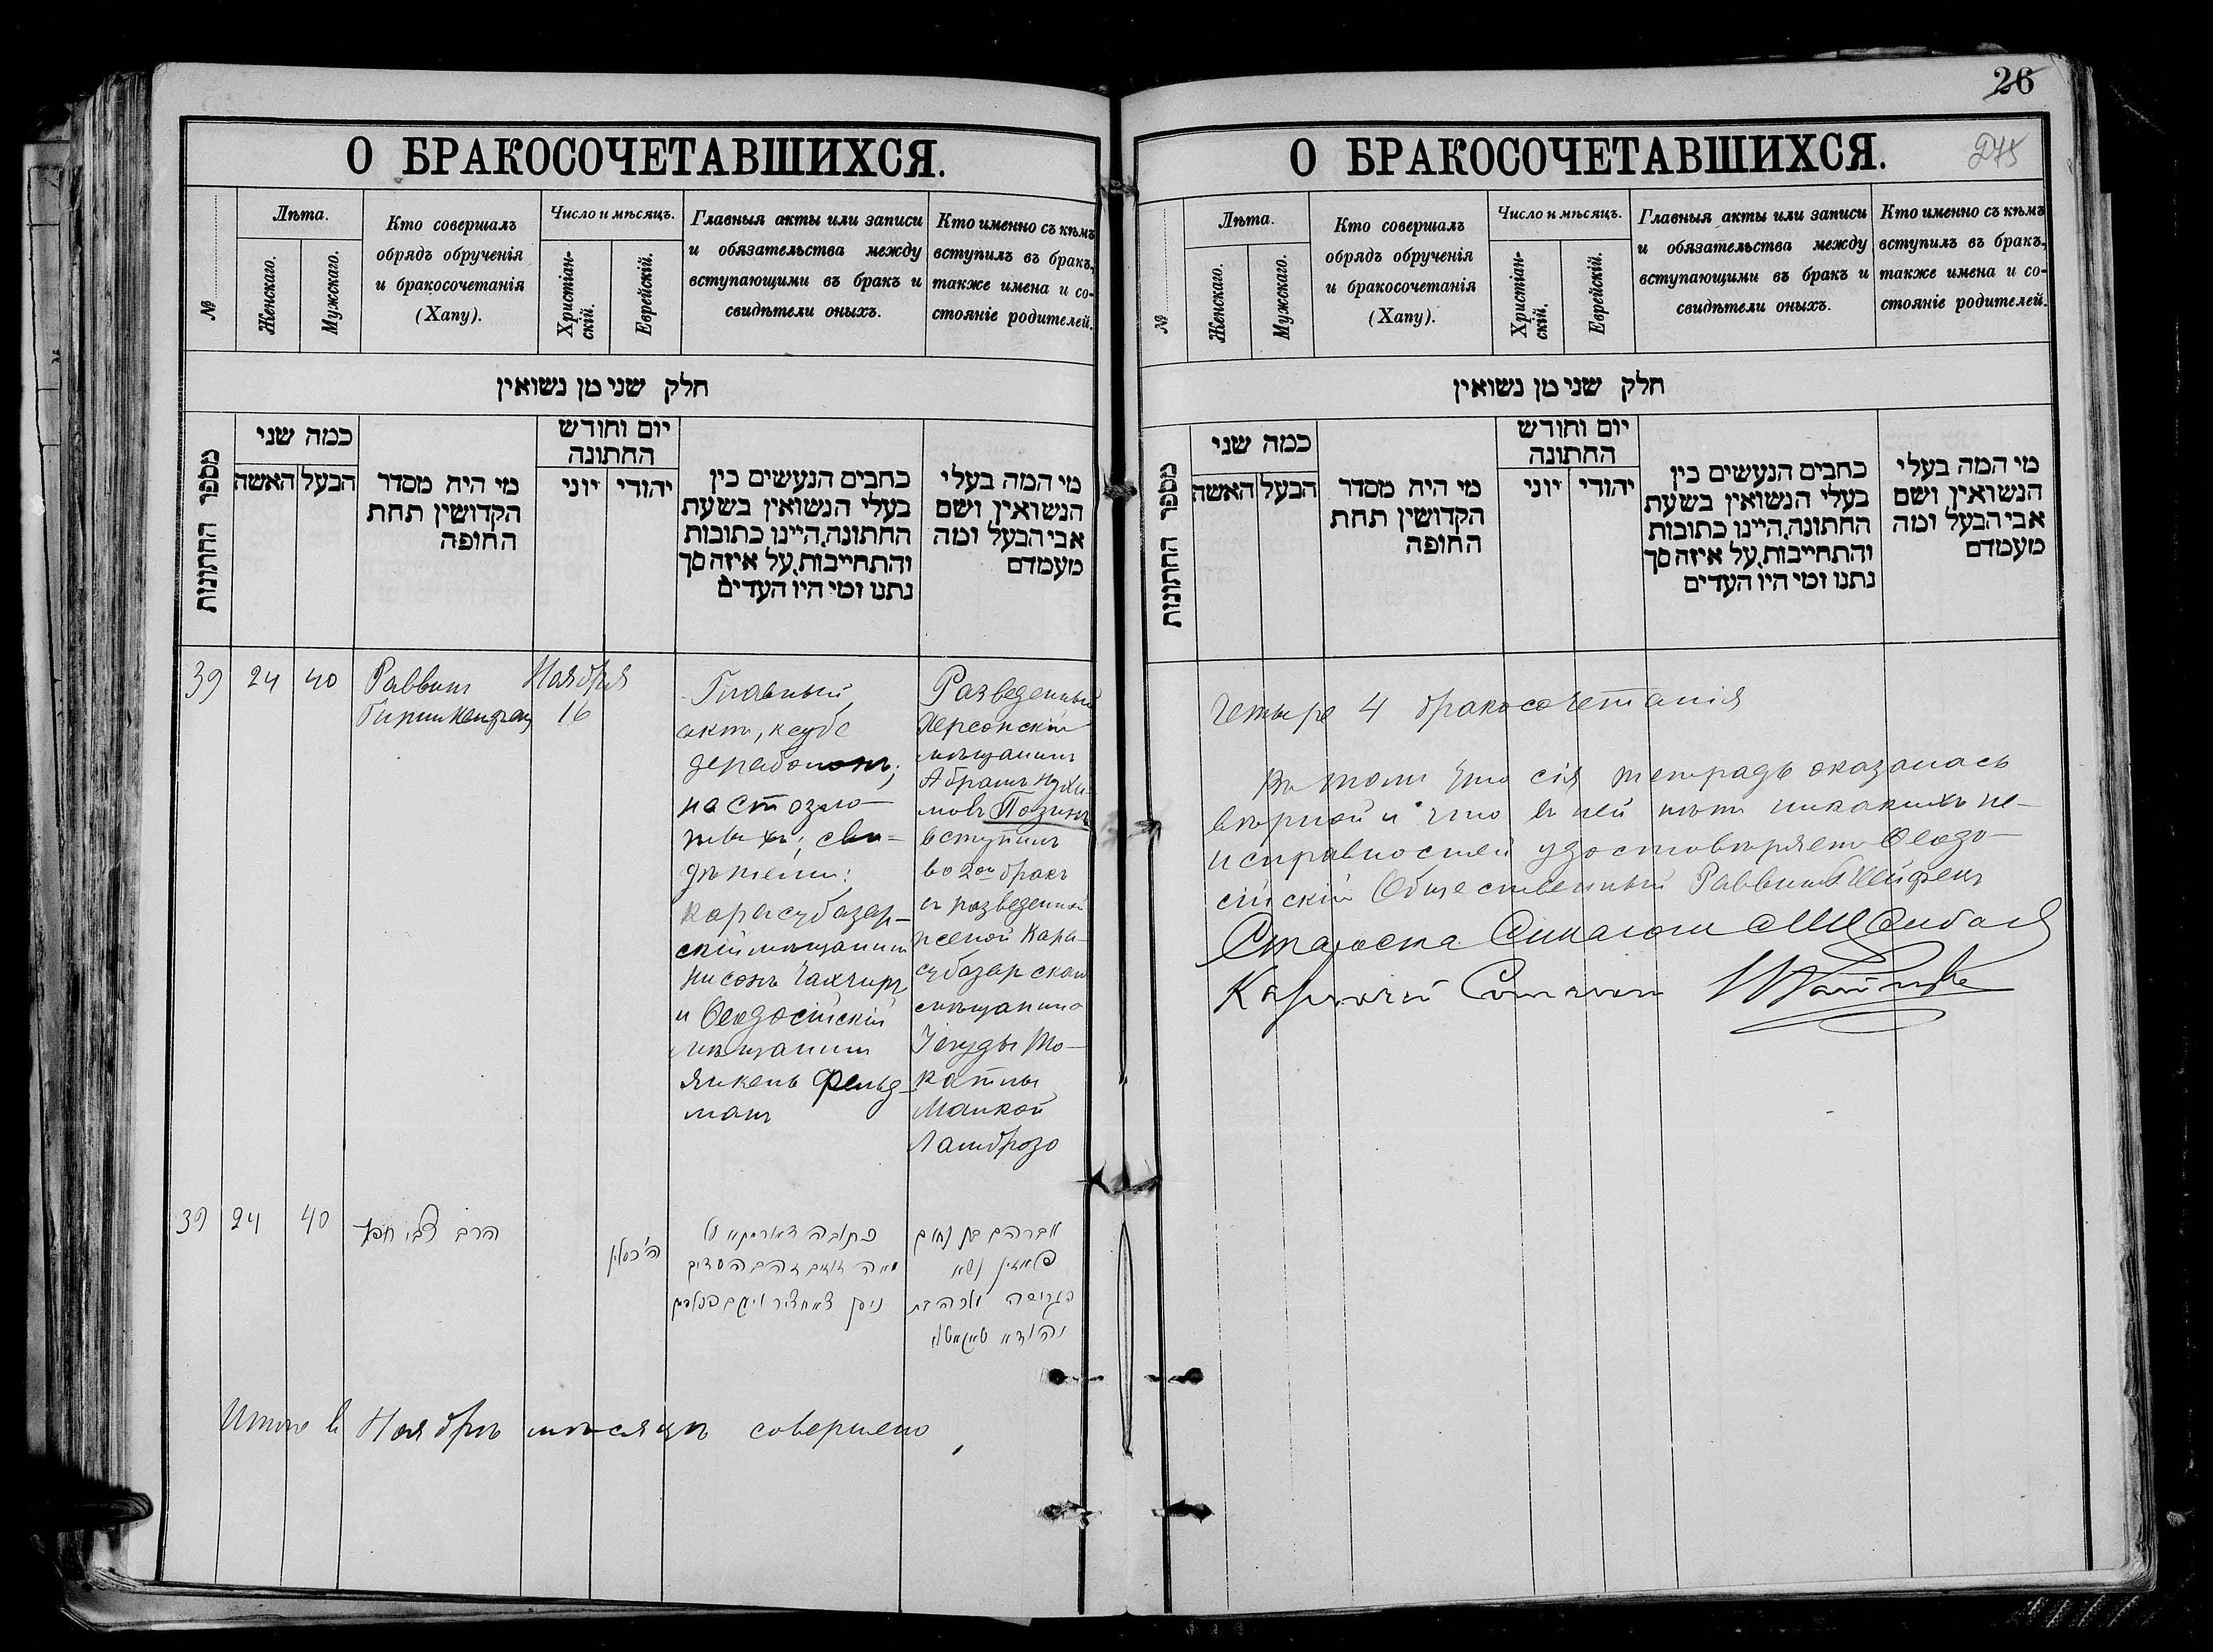 О БРАКОСОЧЕТАВШИХСЯ.
№
Лѣта.
Женскаго.
Мужскаго.
Кто совершалъ
обрядъ обрученія
и бракосочетанія
(Хапу).
Число и мѣсяцъ.
Христіан-
скій.
Еврейскій.
Главныя акты или записи
и обязательства между
вступающими въ бракъ и
свидѣтели оныхъ.
Кто именно съ кѣмъ
вступилъ въ бракъ,
также имена и со-
стояніе родителей.
חלק שני מן נשואין
מספר החתונות
כמה שני
האשה
הבעל
מי היה מסדר
הקדושין תחת
החופה
יום וחודש
החתונה
יוני
יהודי
כתבים הנעשים בין
בעלי הנשואין בשעת
החתונה, היינו כתובות
והתחייבות, על איזה סך
נתנו ומי היו העדים
מי המה בעלי
הנשואין ושם
אבי הבעל ומה
מעמדם
39
24
40
Раввинъ
Ноября
16
Главный
актъ, ксубе
дерабононъ;
на сто зло-
тыхъ; сви-
дѣтели:
Карасубазар-
скій мѣщанинъ
Нисонъ Чахчиръ
и Ѳеодосійскій
мѣщанинъ
Янкель Фельд-
манъ
Разведенный
Херсонскій
мѣщанинъ
Абрамъ Нухи-
мовъ Позинъ
вступилъ
во 2ой бракъ
съ разведенной
женой Кара-
субазарскаго
мѣщанина
Іегуды То-
катлы
Малкой
Ламброзо
39
24
40
הרב
אברהם בן נחום
נשא
הגרושה
יהודא
Итого въ Ноябрѣ мѣсяцѣ совершено
26
275
О БРАКОСОЧЕТАВШИХСЯ.
№
Лѣта.
Женскаго.
Мужскаго.
Кто совершалъ
обрядъ обрученія
и бракосочетанія
(Хапу).
Число и мѣсяцъ.
Христіан-
скій.
Еврейскій.
Главныя акты или записи
и обязательства между
вступающими въ бракъ и
свидѣтели оныхъ.
Кто именно съ кѣмъ
вступилъ въ бракъ,
также имена и со-
стояніе родителей.
חלק שני מן נשואין
מספר החתונות
כמה שני
האשה
הבעל
מי היה מסדר
הקדושין תחת
החופה
יום וחודש
החתונה
יוני
יהודי
כתבים הנעשים בין
בעלי הנשואין בשעת
החתונה, היינו כתובות
והתחייבות, על איזה סך
נתנו ומי היו העדים
מי המה בעלי
הנשואין ושם
אבי הבעל ומה
מעמדם
Четыре 4 бракосочетанія
Въ томъ что сія тетрадь оказалась
вѣрной и что въ ней нѣтъ никакихъ не-
исправностей удостовѣряетъ Ѳеодо-
сійскій Общественный Раввинъ
Староста Синагоги